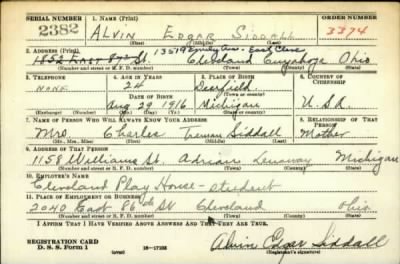 SERIAL NUMBER 1. NAME (Print) ORDER NUMBER
2382 Alvin Edgar Siddall 3374
(First) (Middle) (Last)
13519 Emily Ave. - East Cleve
2. ADDRESS (Print)
1852 East 87th St. Cleveland Cuyahoga Ohio
(Number and street or R. F. D. number) (Town) (County) (State)
3. TELEPHONE 4. AGE IN YEARS 5. PLACE OF BIRTH 6. COUNTRY OF CITIZENSHIP
none 24 Deerfield
DATE OF BIRTH (Town or county)
Aug 29 1916 Michigan U.S.A.
(Exchange) (Number) (Mo.) (Day) (Yr.) (State or country)
7. NAME OF PERSON WHO WILL ALWAYS KNOW YOUR ADDRESS 8. RELATIONSHIP OF THAT PERSON
Mrs Charles Truman Siddall Mother
(Mr., Mrs., Miss) (First) (Middle) (Last)
9. ADDRESS OF THAT PERSON
1158 Williams St. Adrian Lenawey Michigan
(Number and street or R. F. D. number) (Town) (County) (State)
10. EMPLOYER'S NAME
Cleveland Play House - student
11. PLACE OF EMPLOYMENT OR BUSINESS
2040 East 86th St Cleveland Ohio
(Number and street or R. F. D. number) (Town) (County) (State)
I AFFIRM THAT I HAVE VERIFIED ABOVE ANSWERS AND THAT THEY ARE TRUE.
REGISTRATION CARD
D. S. S. Form 1 (over) 16-17105 Alvin Edgar Siddall
(Registrant's signature)